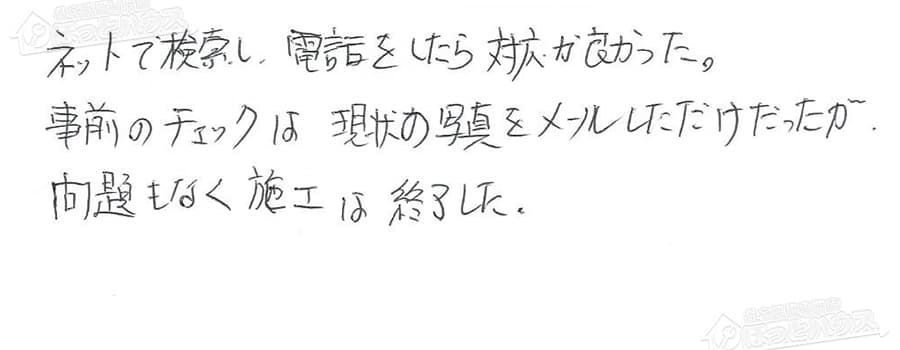 ネットで検索し、電話をしたら対応が良かった。
事前のチェックは 現状の写真をメールしただけだったが、
問題もなく施工は終了した。
ほっとハウス
ほっとハウス